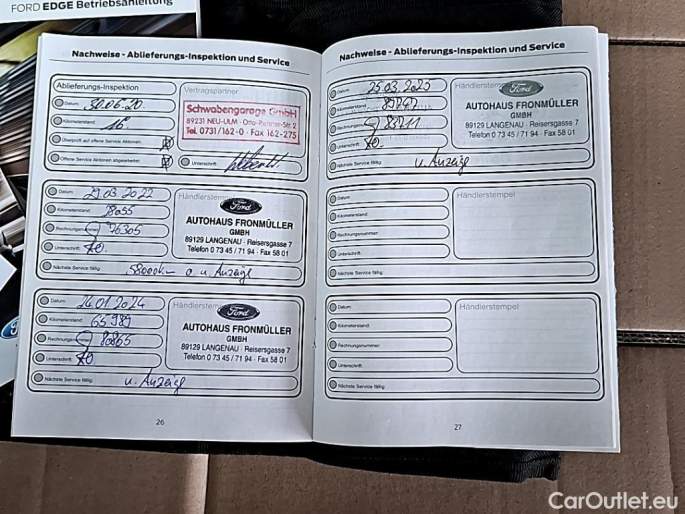 FORD EDGE Betriebsanleitung
Nachweise - Ablieferungs-Inspektion und Service
Ablieferungs-Inspektion
Vertragspartner
Datum 30.06.20
Kilometerstand 16
Überprüft auf offene Service Aktionen
Offene Service Aktionen abgearbeitet
Unterschrift
Schwabengarage GmbH
89231 NEU-ULM
Tel. 0731/162-0 · Fax 162-275
Datum 03.2022
Kilometerstand
Rechnungs 76305
Unterschrift
Nächste Service fällig u. Anzeige
Händlerstempel
Ford
AUTOHAUS FRONMÜLLER
GMBH
89129 LANGENAU · Reisersgasse 7
Telefon 0 73 45 / 71 94 · Fax 58 01
Datum 01.2024
Kilometerstand 65989
Rechnungs 80865
Unterschrift
Nächste Service fällig u. Anzeige
Händlerstempel
Ford
AUTOHAUS FRONMÜLLER
GMBH
89129 LANGENAU · Reisersgasse 7
Telefon 0 73 45 / 71 94 · Fax 58 01
26
Nachweise - Ablieferungs-Inspektion und Service
Datum 25.03.2025
Kilometerstand
Rechnungs 83711
Unterschrift
Nächste Service fällig u. Anzeige
Händlerstempel
Ford
AUTOHAUS FRONMÜLLER
GMBH
89129 LANGENAU · Reisersgasse 7
Telefon 0 73 45 / 71 94 · Fax 58 01
Datum
Kilometerstand
Rechnungsnummer
Unterschrift
Nächste Service fällig
Händlerstempel
Datum
Kilometerstand
Rechnungsnummer
Unterschrift
Nächste Service fällig
Händlerstempel
27
CarOutlet.eu